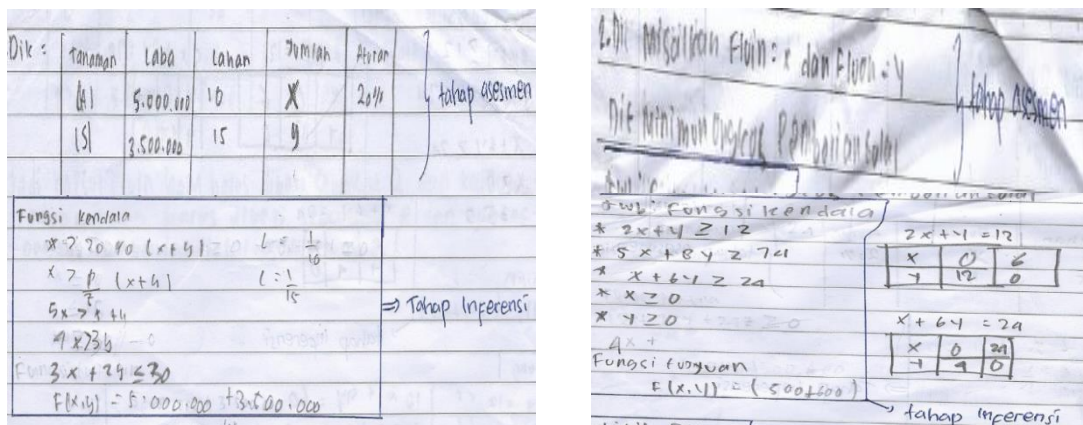 Dik :
Tanaman Laba Lahan Jumlah Aturan
(A) 5.000.000 10 X 20%
(S) 3.500.000 15 y
tahap asesmen
Fungsi kendala
x > 20 % (x+y)
5x > x + y
4 x > y
3x + 2y ≤ 30
F(x,y) = 5.000.000 + 3.500.000
⇒ Tahap Inferensi
2. Dik misalkan Fluin = x dan Fluon = y
Dit Minimum ongkos Pembelian Solar
tahap asesmen
Jwb : Fungsi kendala
* 2x + y ≥ 12
* 5x + 8y ≥ 74
* x + 6y ≥ 24
* x ≥ 0
* y ≥ 0
4x +
Fungsi tujuan
F(x,y) = (500+600)
2x + y = 12
x 0 6
y 12 0
x + 6y = 24
x 0 24
y 4 0
tahap inferensi